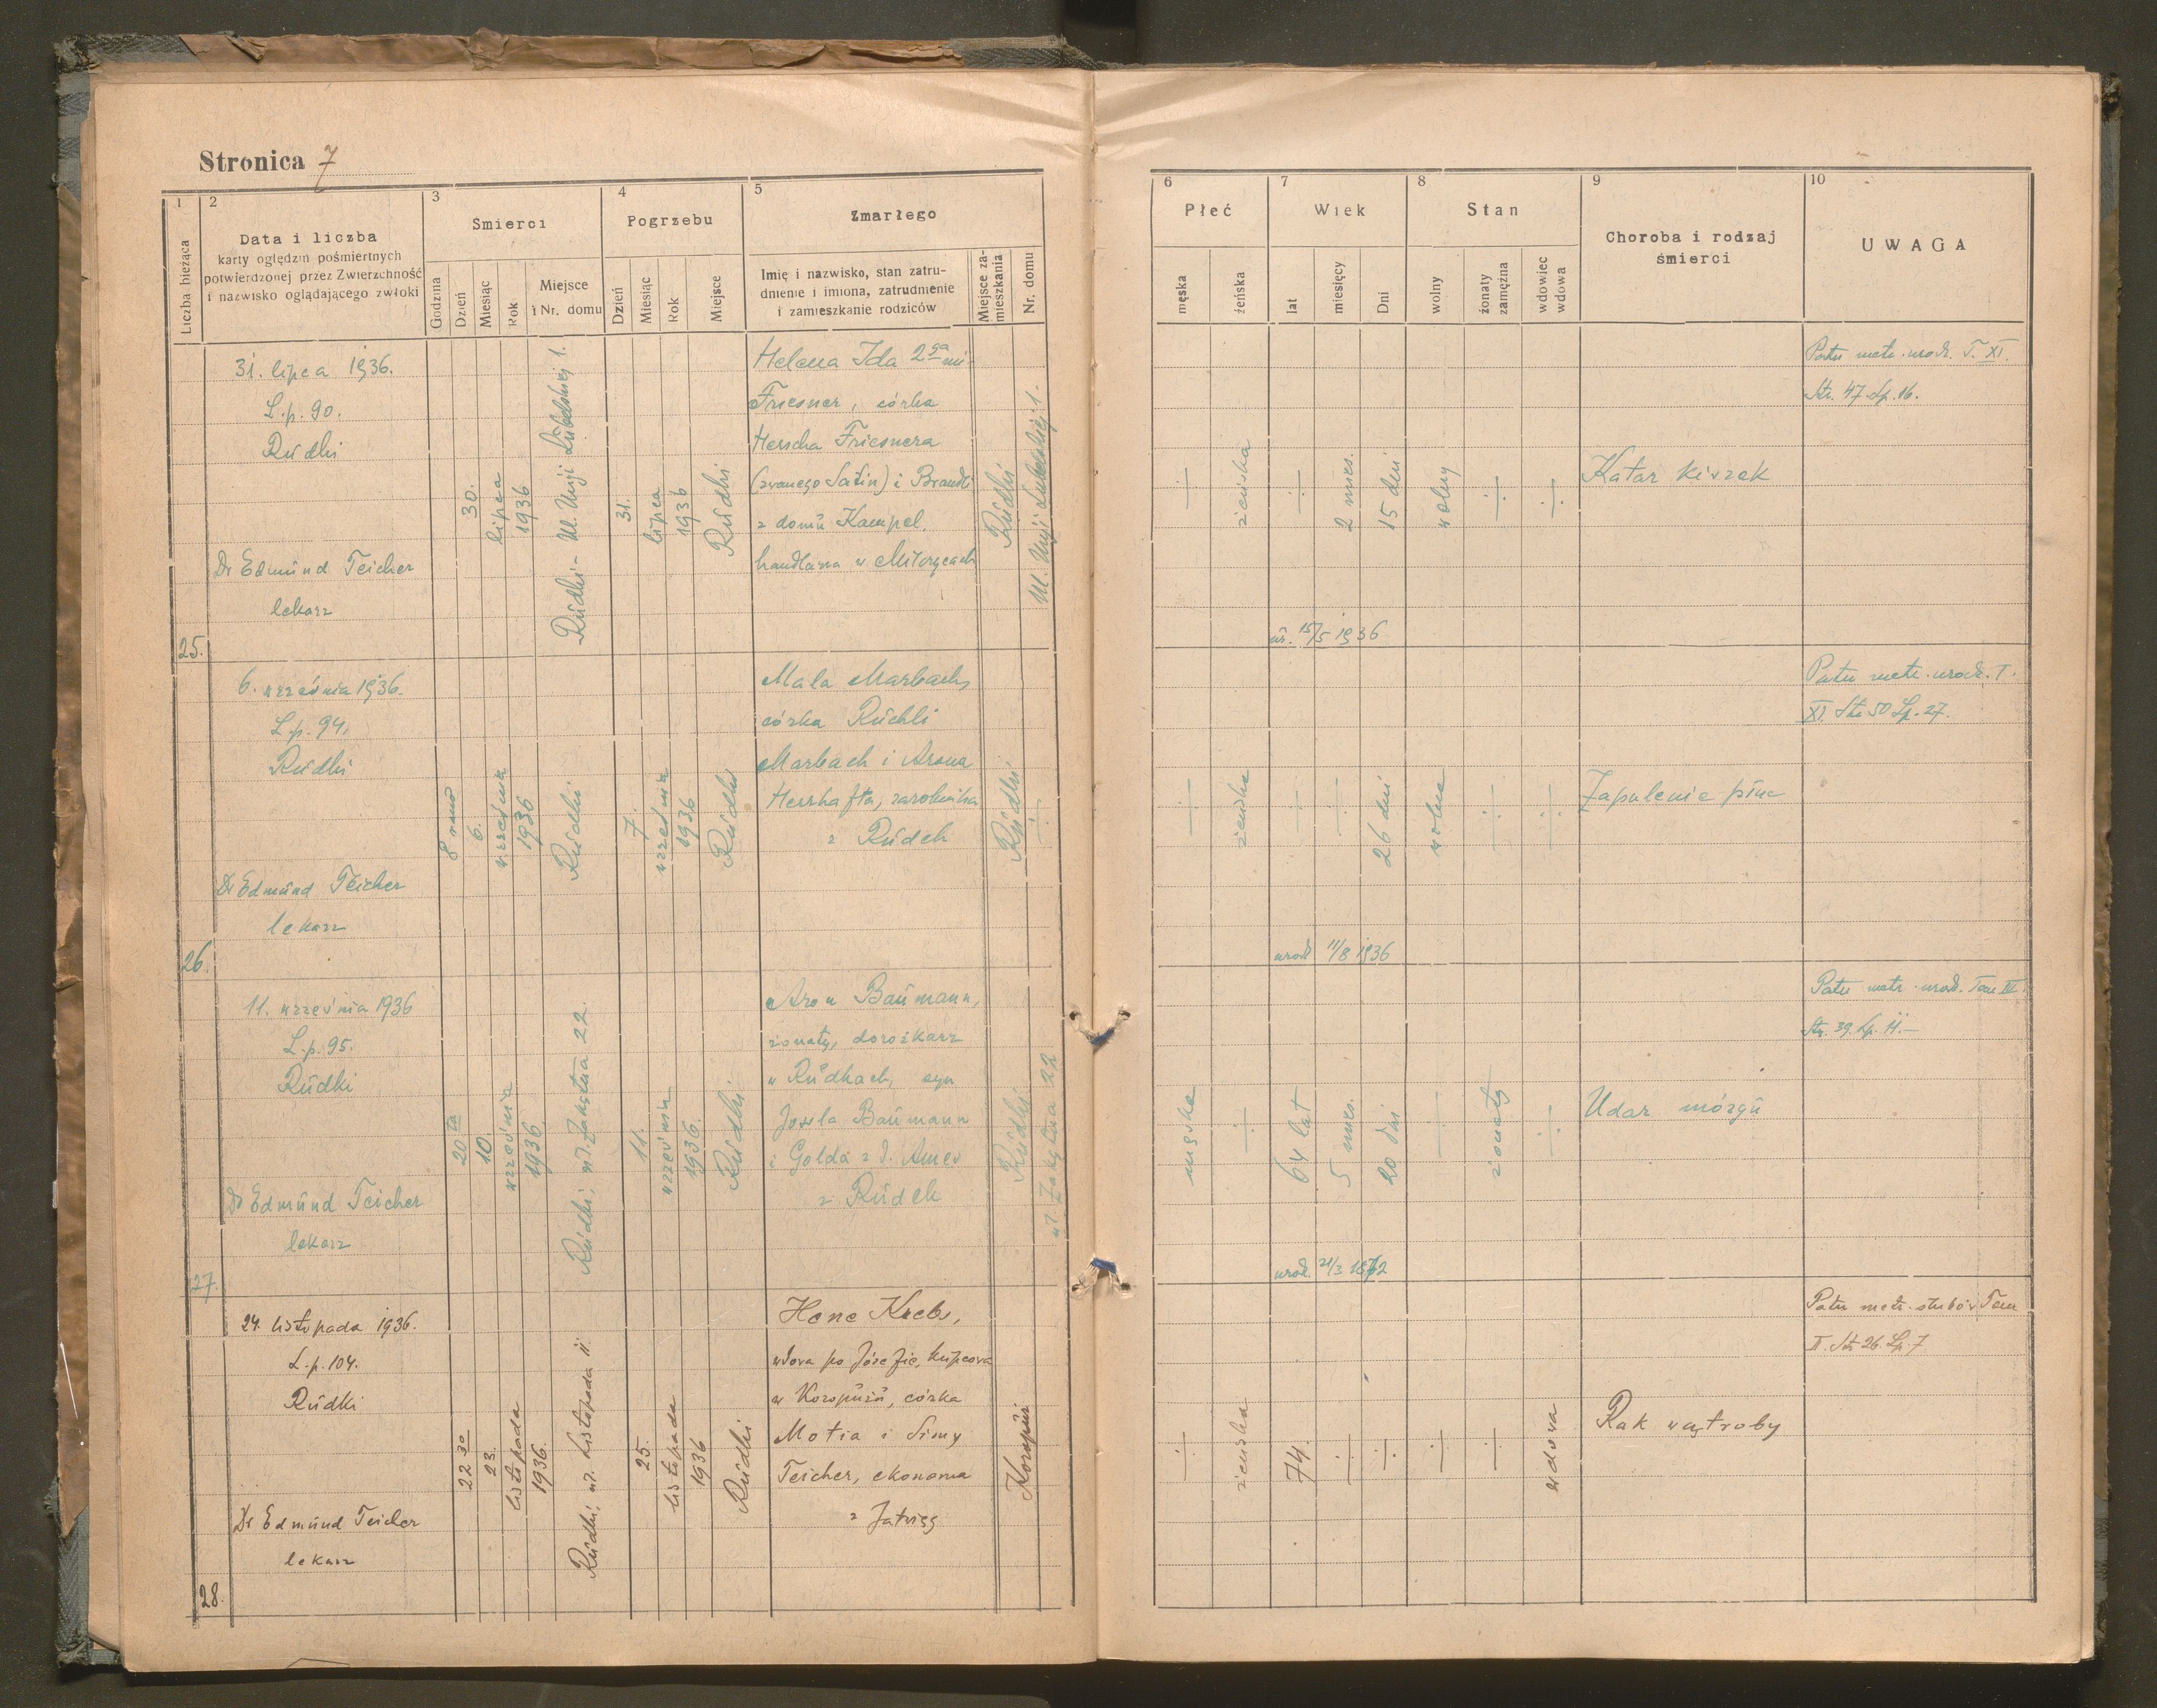 Stronica 7
1
2
3
4
5
Liczba bieżąca
Data i liczba
karty oględzin pośmiertnych
potwierdzonej przez Zwierzchność
i nazwisko oglądającego zwłoki
Smierci
Godzina
Dzień
Miesiąc
Rok
Miejsce
i Nr. domu
Pogrzebu
Dzień
Miesiąc
Rok
Miejsce
Zmarłego
Imię i nazwisko, stan zatru-
dnienie i imiona, zatrudnienie
i zamieszkanie rodziców
Miejsce za-
mieszkania
Nr. domu
6
7
8
9
10
Płeć
męska
żeńska
Wiek
lat
miesięcy
Dni
Stan
wolny
żonaty
zamężna
wdowiec
wdowa
Choroba i rodzaj
śmierci
UWAGA
25.
31. lipca 1936.
L.p. 90.
Rudki
Dr Edmund Teicher
lekarz
30.
lipca
1936
Rudki - Ul. Unji Lubelskiej 1.
31.
lipca
1936
Rudki
Helena Ida 2ga im.
Friesner, córka
Herscha Friesnera
(zwanego Satin) i Brandli
z domu Kampel,
handlarza w
Rudki
Ul. Unji Lubelskiej 1.
÷
żeńska
÷
2 mies.
15 dni
wolny
÷
÷
Katar kiszek
ur. 15/5 1936
Patrz metr. urodz. T. XI.
Str. 47 Lp. 16.
26.
6. września 1936.
L.p. 94.
Rudki
Dr Edmund Teicher
lekarz
8 rano
6.
września
1936
Rudki
7.
września
1936
Rudki
Mala Marbach,
córka Ruchli
Marbach i Arona
Herzhafta, zarobnika
z Rudek
Rudki
÷
÷
żeńska
÷
÷
26 dni
wolna
÷
÷
Zapalenie płuc
urodz 11/8 1936
Patrz metr. urodz. T.
XI. Str 50 Lp. 27.
27.
11. września 1936
L.p. 95.
Rudki
Dr Edmund Teicher
lekarz
20ta
10.
września
1936
Rudki, ul. Zakątna 22.
11.
września
1936.
Rudki
Aron Baumann,
żonaty, dorożkarz
w Rudkach, syn
Josela Baumann
i Golda z d. Amev
z Rudek
Rudki
ul. Zakątna 22
męska
÷
64 lat
5 mies.
20 dni
÷
żonaty
÷
Udar mózgu
urodz. 21/3 1872
Patrz metr. urodz. Tom IV.
Str. 39. Lp. 11.-
28.
24. listopada 1936.
L.p. 104.
Rudki
Dr Edmund Teicher
lekarz
22 30
23.
listopada
1936.
Rudki, ul. Listopada 11.
25.
listopada
1936
Rudki
Hene Krebs,
wdowa po Józefie, kupcowa
w Koropużu, córka
Motia i Simy
Teicher, ekonoma
z Jatwięg
Koropuż
÷
żeńska
74
÷
÷
÷
÷
wdowa
Rak wątroby
Patrz metr. ślubów Tom
II. Str 26. Lp. 7